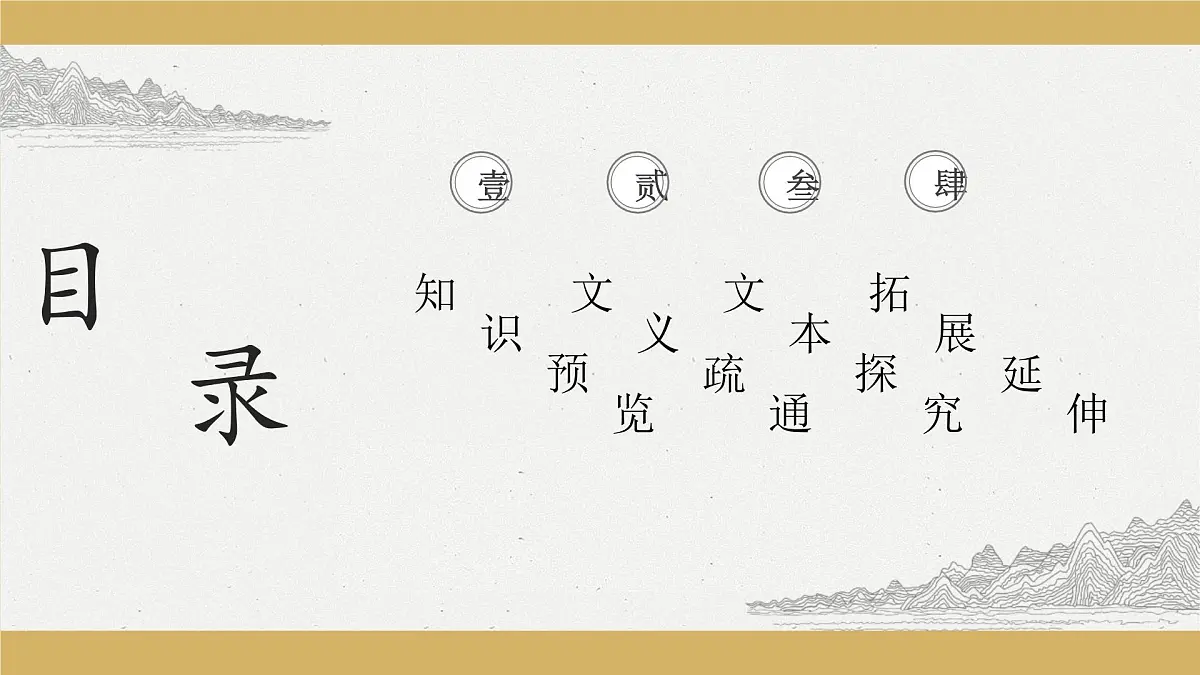 目录
壹
贰
叁
肆
知识预览
文义疏通
文本探究
拓展延伸